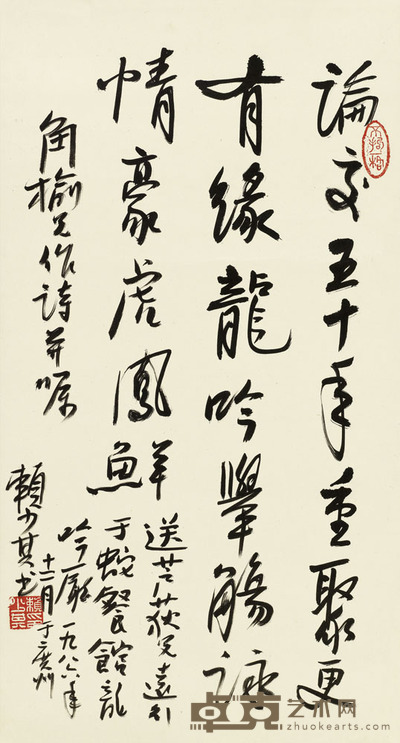 論交五十年重聚更
有緣龍吟舉觴詠
情豪虎鳳鮮
送芒荻兄遠引
于蛇餐館龍
吟廳一九八六年
十二月于廣州
角榆兄作詩并囑
賴少其书
艺术网
www.zhuokearts.com